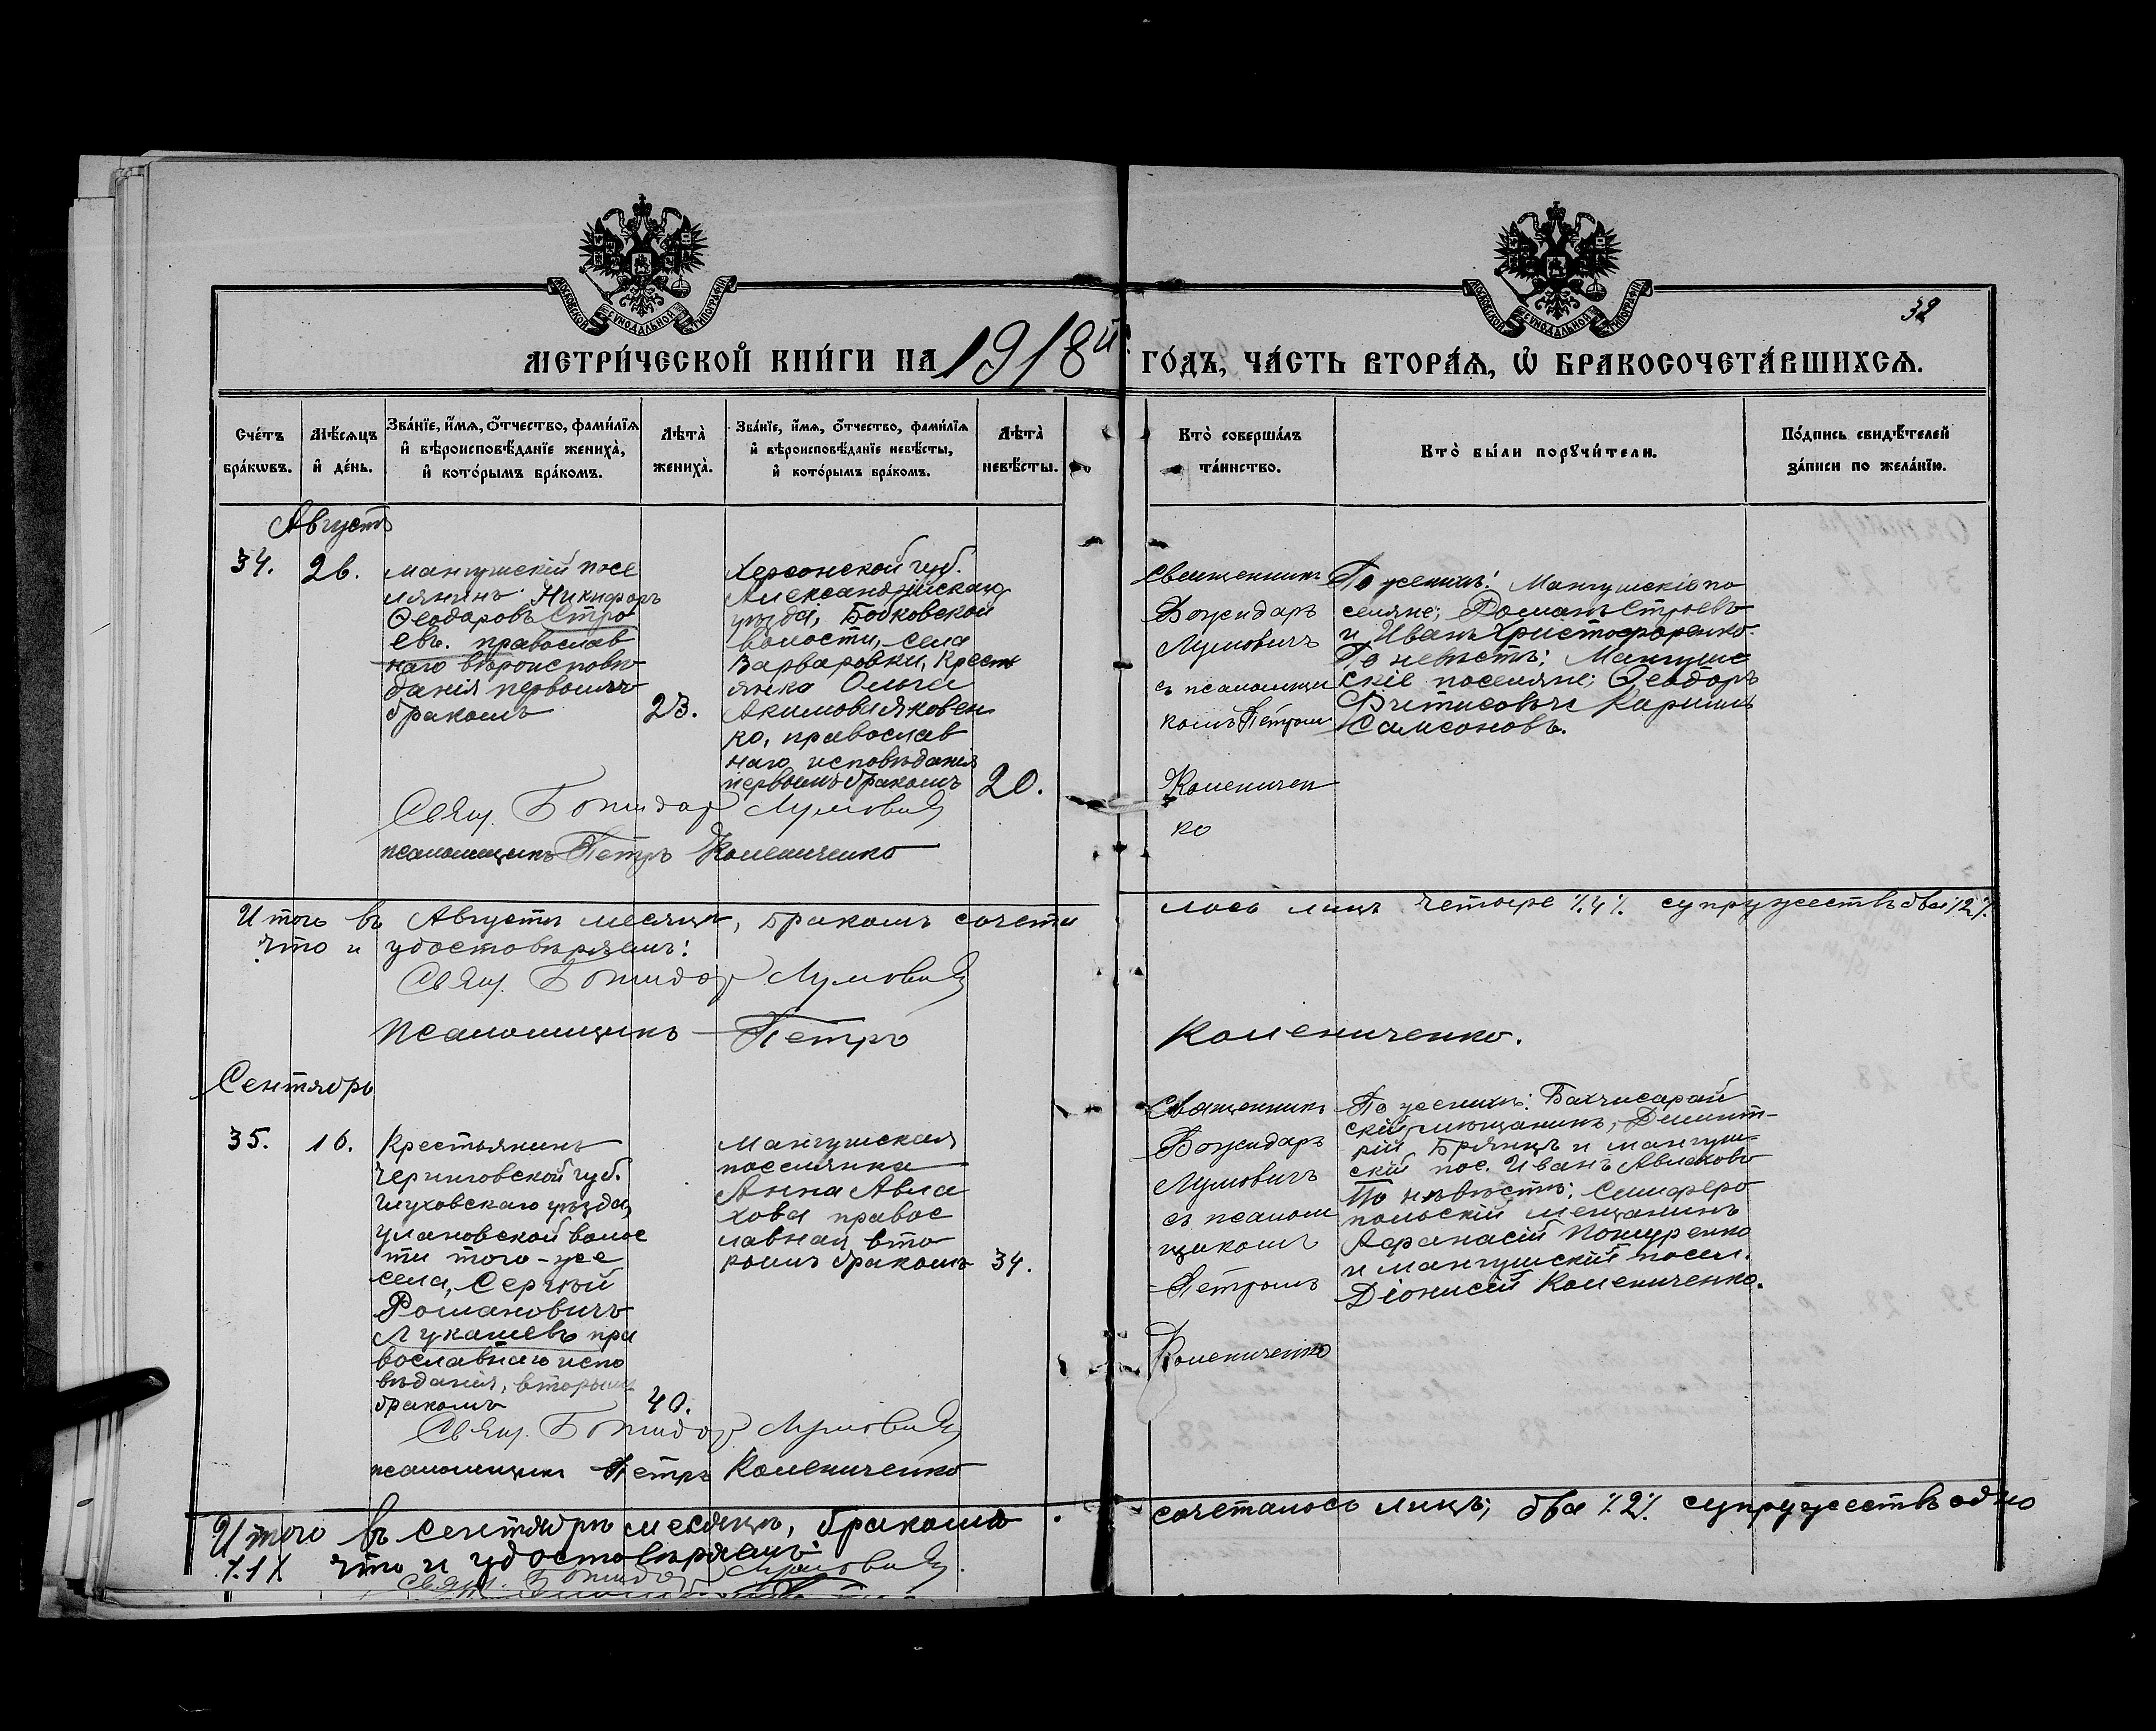 МОСКОВСКОЙ СѴНОДАЛЬНОЙ ТИПОГРАФІИ
МОСКОВСКОЙ СѴНОДАЛЬНОЙ ТИПОГРАФІИ
32
МЕТРИ́ЧЕСКОЙ КНИ́ГИ НА 1918й ГО́ДЪ, ЧА́СТЬ ВТОРА́Ѧ, Ѽ БРАКОСОЧЕТА́ВШИХСѦ.
Сче́тъ бра́кѡвъ.
Мѣ́сѧцъ и҆ де́нь.
Зва́нїе, и҆́мѧ, ѻ҆́тчество, фами́лїѧ и҆ вѣроисповѣ́данїе жениха̀, и҆ кото́рымъ бра́комъ.
Лѣта̀ жениха̀.
Зва́нїе, и҆́мѧ, ѻ҆́тчество, фами́лїѧ и҆ вѣроисповѣ́данїе невѣ́сты, и҆ кото́рымъ бра́комъ.
Лѣта̀ невѣ́сты.
Кто̀ соверша́лъ та́инство.
Кто̀ бы́ли порꙋчи́тели.
По́дпись свидѣ́телей за́писи по жела́нїю.
Августъ
34.
26.
Мангушскій посе
лянинъ Никифоръ
Ѳеодоровъ Стро
евъ. православ
наго вѣроисповѣ
данія первымъ
бракомъ
23.
Херсонской губ.
Александрійскаго
уѣзда, Бобковской
волости, села
Варваровки, Кресть
янка Ольга
Акимова Яковен
ко, православ
наго исповѣданія
первымъ бракомъ
20.
Священникъ
Божидаръ
Лумовичъ
съ псаломщи
комъ Петром
Коменичен
ко
По женихѣ: Мангушскіе по
селяне; Романъ Строевъ
и Иванъ Христофоренко.
По невѣстѣ: Мангушс
кіе поселяне; Ѳеодоръ
Самсоновъ.
Свящ. Божидар Лумовић
псаломщикъ Петръ Комениченко
Итого въ Августѣ месяцѣ, бракомъ сочета
лось лицъ четыре %4% супружествъ два %2%
что и удостовѣряемъ:
Свящ. Божидар Лумовић
Псаломщикъ Петръ Комениченко.
Сентябрь
35.
16.
Крестьянинъ
Черниговской губ.
Глуховскаго уѣзда,
Улановской волос
ти того-же
села, Сергѣй
Романовичъ
Лукашевъ пра
вославнаго испо
вѣданія, вторымъ
бракомъ
40.
Мангушская
поселянка
Анна Авла
хова правос
лавная вто
рымъ бракомъ
34.
Священникъ
Божидаръ
Лумовичъ
съ псалом
щикомъ
Петромъ
Комениченко
По женихѣ: Бахчисарай
скій мещанинъ, Димит-
рій Брянцъ и мангуш-
скій пос. Иванъ Авлаховъ
По нѣвѣстѣ: Симферо
польскій мещанинъ
Афанасій Пошуренко
и мангушскій посел.
Діонисій Комениченко.
Свящ. Божидар Лумовић
псаломщикъ Петръ Комениченко
Итого въ Сентябрѣ месяцѣ, бракомъ сочеталось лицъ; два %2% супружествъ одно
%1% что и удостовѣряемъ:
Свящ. Божидар Лумовић